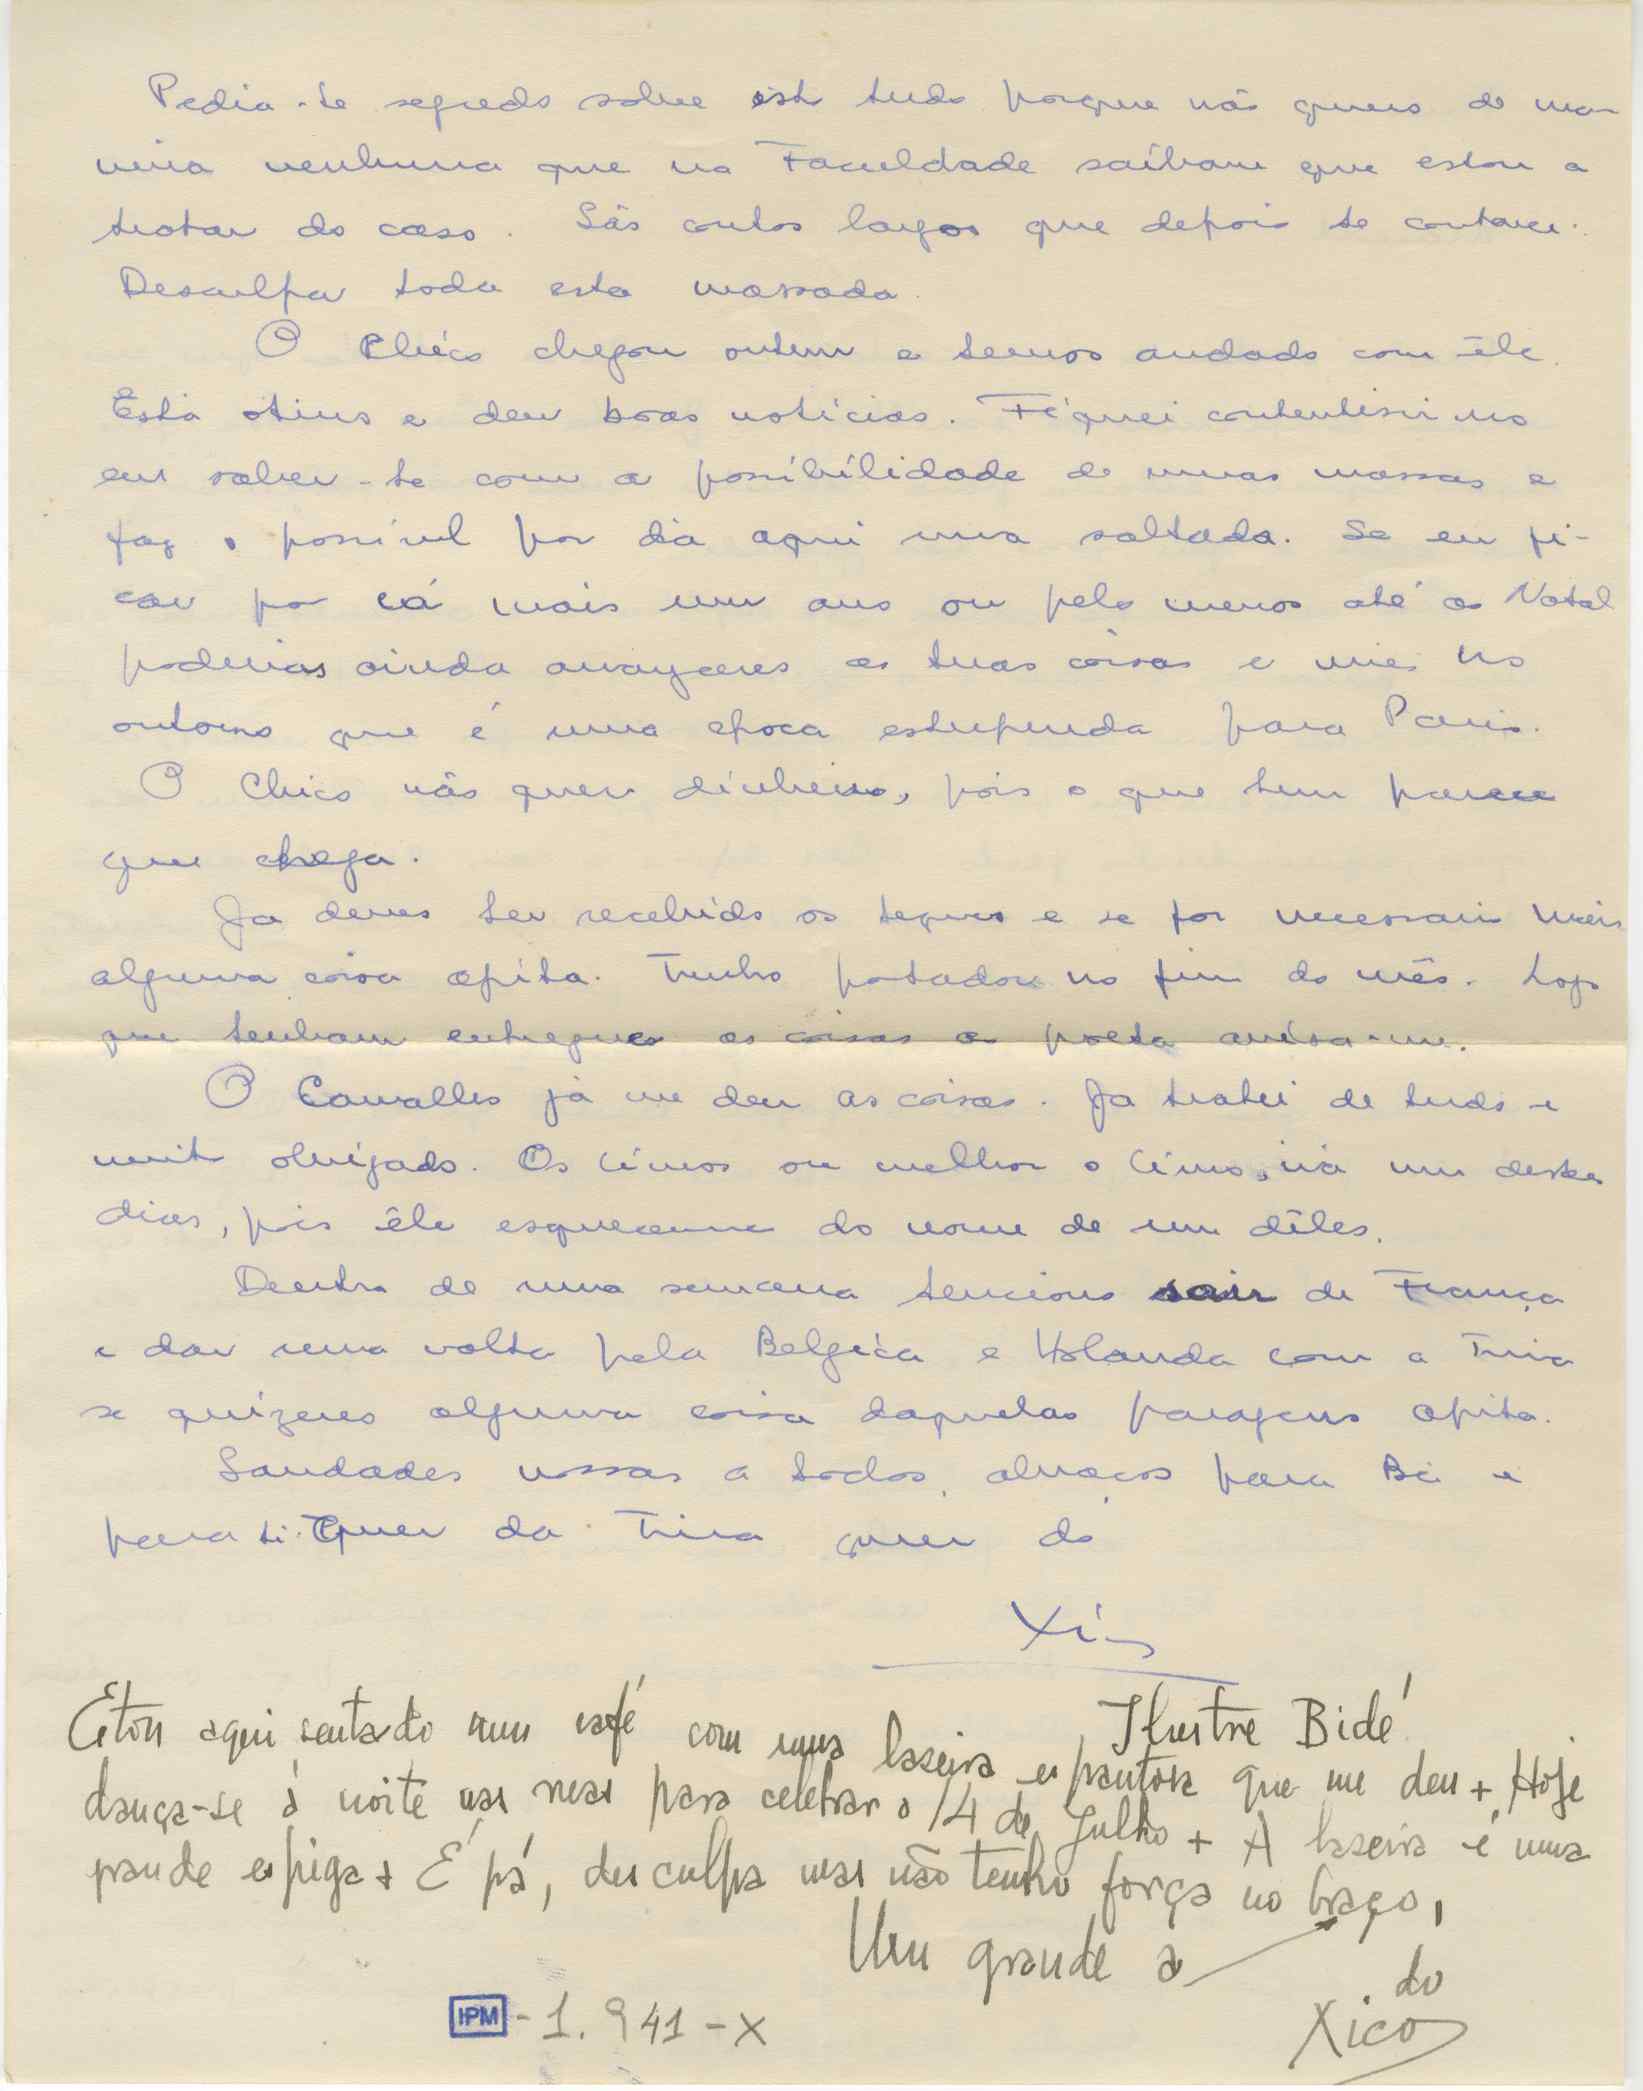 Pedia-te segredo sobre isto tudo porque não quero de ma-
neira nenhuma que na Faculdade saibam que estou a
tratar do caso. São contos largos que depois te contarei.
Desculpa toda esta massada.
O Chico chegou ontem e temos andado com êle.
Está otimo e deu boas notícias. Fiquei contentissimo
em saber-te com a possibilidade de umas massas e
faz o possivel por dar aqui uma saltada. Se eu fi-
car por cá mais um ano ou pelo menos até ao Natal
poderias ainda arranjares as tuas coisas e vires no
outono que é uma epoca estupenda para Paris.
O Chico não quer dinheiro, pois o que tem parece
que chega.
Ja deves ter recebido os seguros e se for necessario mais
alguma coisa apita. Tenho portador no fim do mês. Logo
que tenham entregues as coisas ao poeta avisa-me.
O Carvalho já me deu as coisas. Ja tratei de tudo e
muito obrigado. Os livros ou melhor o livro, irá um destes
dias, pois êle esqueceu-me do nome de um dêles.
Dentro de uma semana tenciono sair de França
e dar uma volta pela Belgica e Holanda com a
se quizeres alguma coisa daquelas paragens apita.
Saudades nossas a todos, abraços para Bé e
para ti. Quer da quer do
Ilustre Bidé
Estou aqui sentado num café com uma lazeira espantosa que me deu + Hoje
dança-se à noite nas ruas para celebrar o 14 de Julho + A lazeira é uma
grande espiga + É pá, desculpa mas não tenho força no braço,
Um grande a
do
Xico
IPM - 1.941 - X